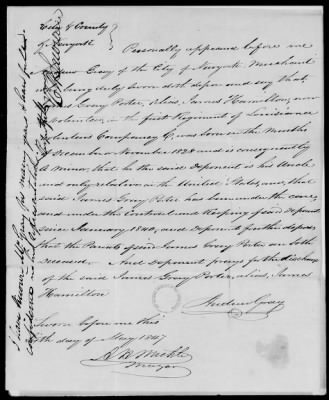 City & County
of New York
Personally appeared before me
Andrew Gray of the City of New York Merchant
who being duly Sworn doth depose and say that,
James Gray Porter, Alias, James Hamilton, now
a Volunteer, in the first Regiment of Louisiana
Volunteers Company C, was born in the Months
of December or November 1828 and is consequently
a Minor, that he the said Deponent is his Uncle
and only relative in the United States, and, that
said James Gray Porter has been under the care,
and under the Controul and Keeping of said Deponent
since January 1840, and Deponent further deposes,
that the Parents of said James Gray Porter are both
deceased. And Deponent prays for the discharge
of the said James Gray Porter, alias, James
Hamilton
Andrew Gray
Sworn before me this
day of May 1847
Mayor
I have known Mr Gray for many years & place full
confidence in his